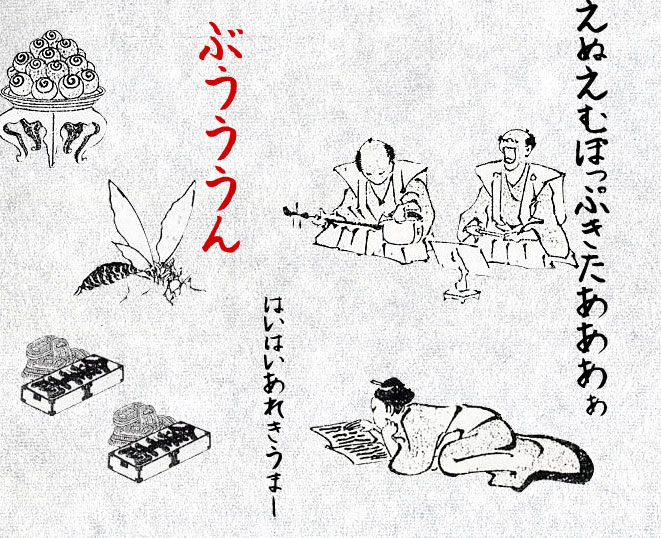 えぬえむぽっぷきたあああぁ
ぶうううん
はいはいあれきうまー